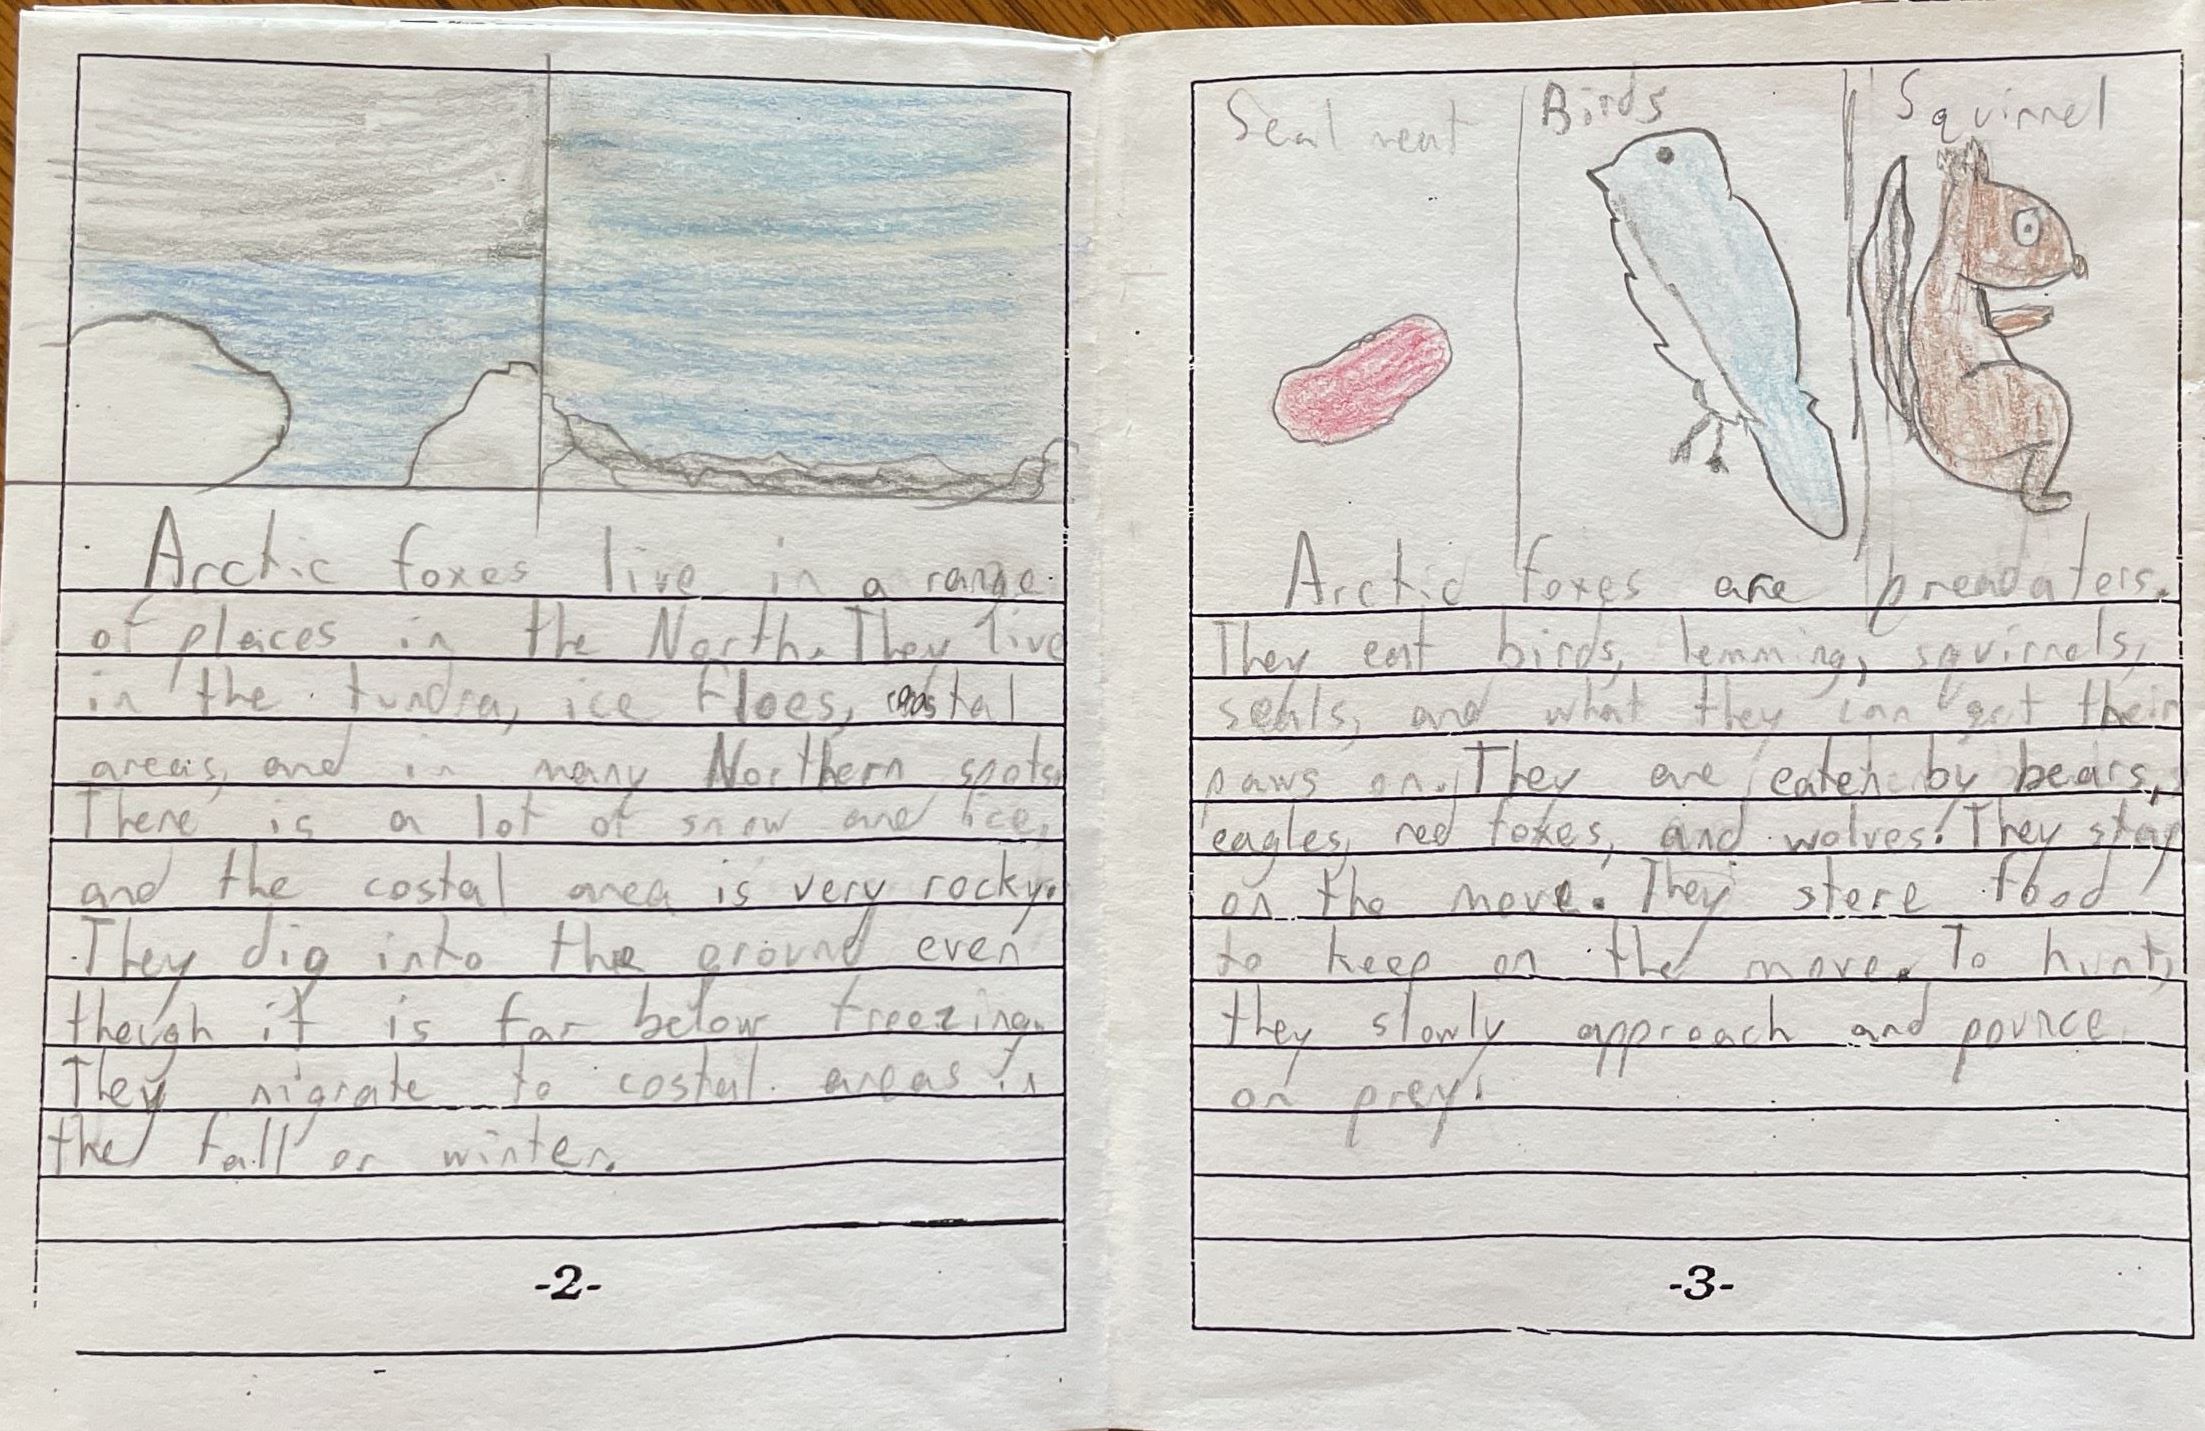 Arctic foxes live in a range
of places in the North. They live
in the tundra, ice floes, coastal
areas, and in many Northern spots.
There is a lot of snow and ice,
and the costal area is very rocky.
They dig into the ground even
though it is far below freezing.
They migrate to costal areas in
the fall or winter.
-2-
Seal meat Birds Squirrel
Arctic foxes are preadaters.
They eat birds, lemming, squirrels,
seals, and what they can get their
paws on. They are eaten by bears,
eagles, red foxes, and wolves. They stay
on the move. They store food
to keep on the move. To hunt,
they slowly approach and pounce
on prey.
-3-